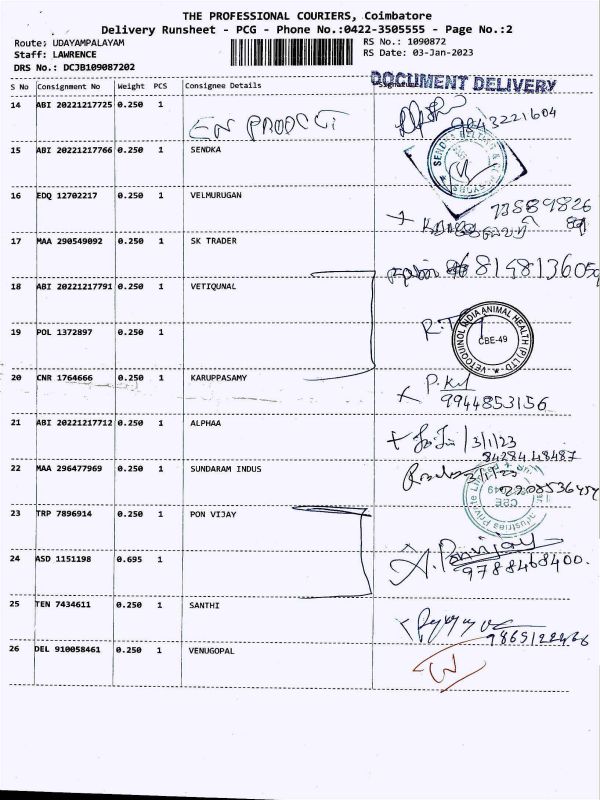 THE PROFESSIONAL COURIERS, Coimbatore
Delivery Runsheet - PCG - Phone No.:0422-3505555 - Page No.:2
Route: UDAYAMPALAYAM RS No.: 1090872
Staff: LAWRENCE RS Date: 03-Jan-2023
DRS No.: DCJB109087202
DOCUMENT DELIVERY
S No Consignment No Weight PCS Consignee Details Signature
14 ABI 20221217725 0.250 1
9843221604
15 ABI 20221217766 0.250 1 SENDKA
16 EDQ 12702217 0.250 1 VELMURUGAN
17 MAA 290549092 0.250 1 SK TRADER
18 ABI 20221217791 0.250 1 VETIQUNAL
19 POL 1372897 0.250 1
VETOQUINOL INDIA ANIMAL HEALTH (P) LTD
CBE-49
20 CNR 1764666 0.250 1 KARUPPASAMY
9944853156
21 ABI 20221217712 0.250 1 ALPHAA
3/1/23
84284 48487
22 MAA 296477969 0.250 1 SUNDARAM INDUS
23 TRP 7896914 0.250 1 PON VIJAY
24 ASD 1151198 0.695 1
A. Ponvijay
9788468400.
25 TEN 7434611 0.250 1 SANTHI
26 DEL 910058461 0.250 1 VENUGOPAL